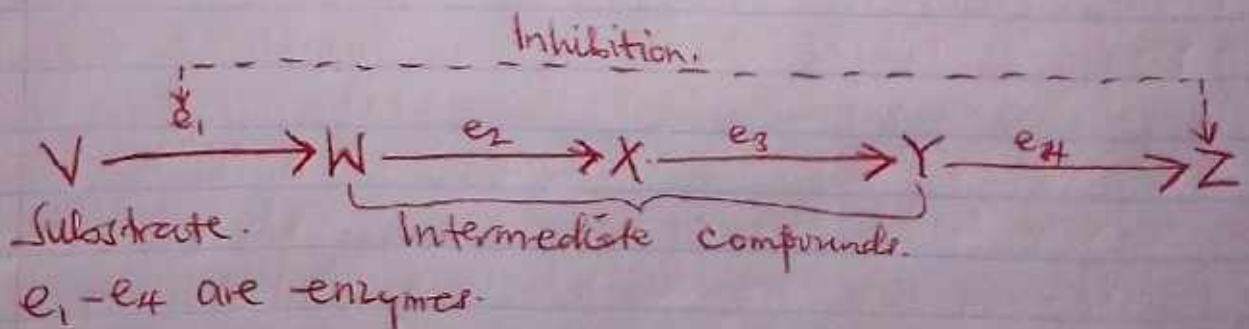 Inhibition.
V e1 W e2 X e3 Y e4 Z
Substrate. Intermediate compounds.
e1-e4 are enzymes.